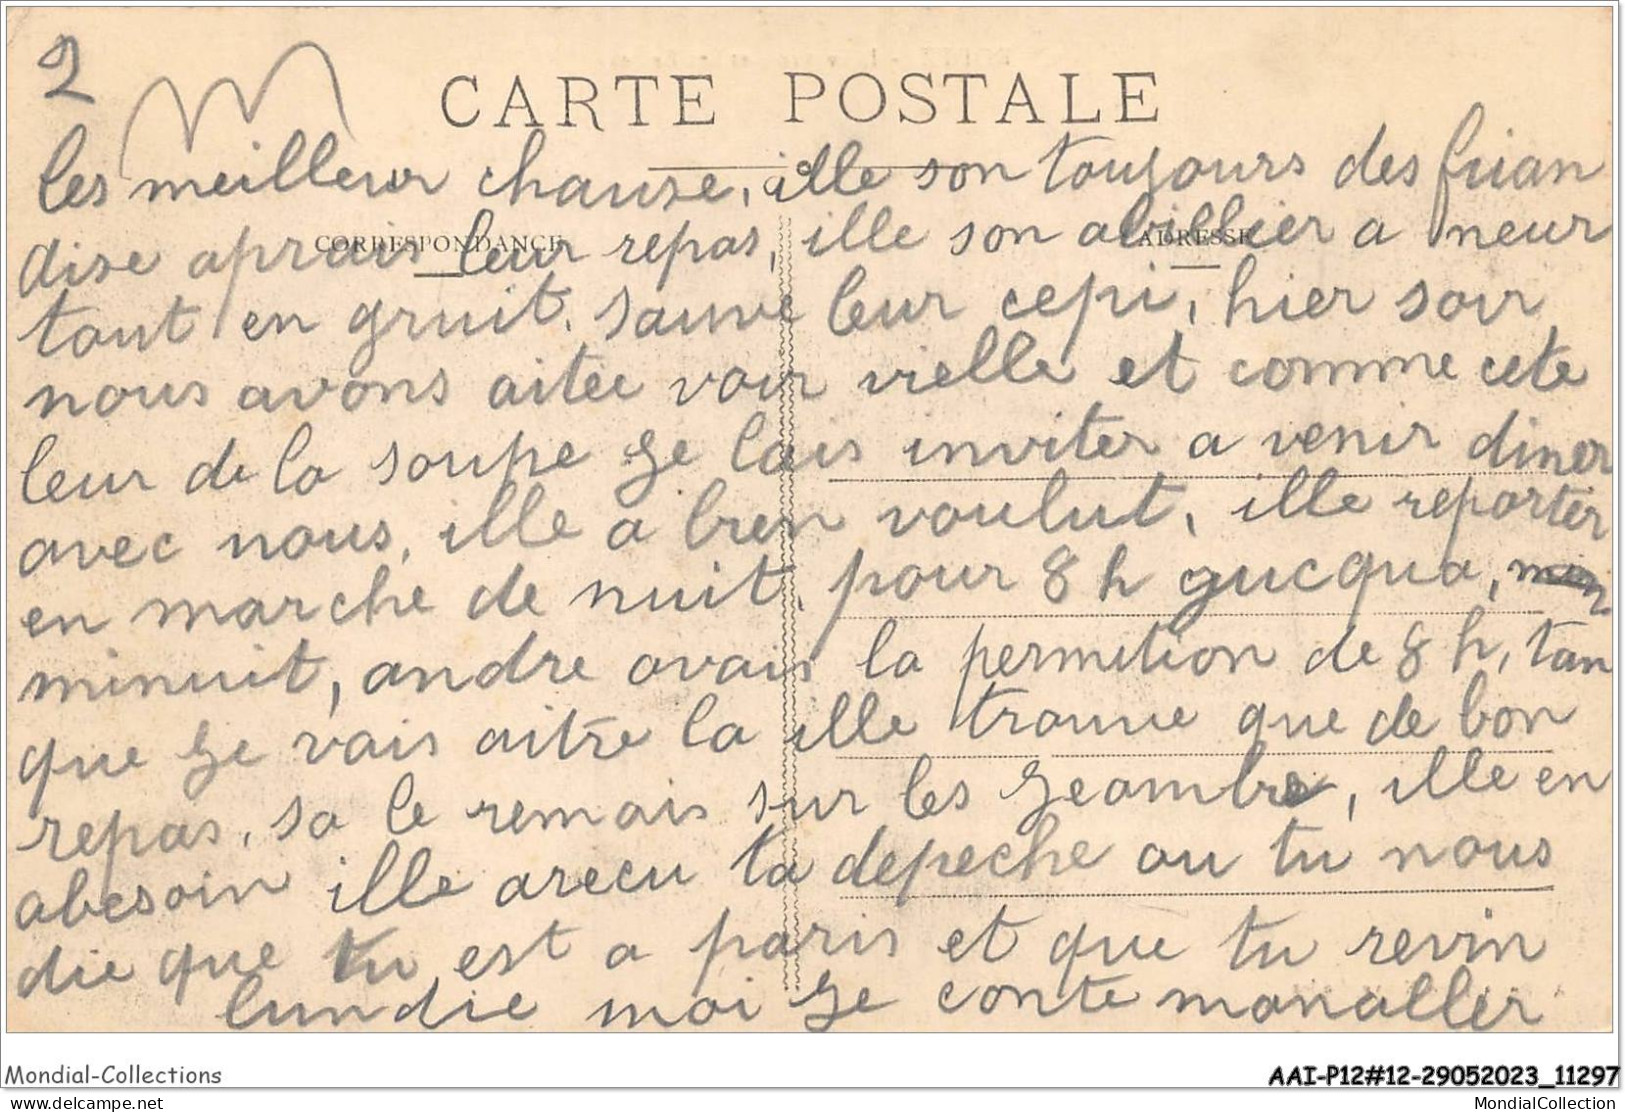 2
CARTE POSTALE
les meilleur chause, ille son toujours des frian
CORRESPONDANCE
ADRESSE
dise aprais leur repas, ille son abillier a neur
tout en gruit. sauve leur cepi, hier soir
nous avons aitee voir vielle et comme cete
leur de la soupe ge lais inviter a venir diner
avec nous, ille a bien voulut, ille reporter
en marche de nuit, pour 8 h gucqua,
minuit, andre avais la permition de 8 h, tan
que ge vais aitre la ille trouve que de bon
repas, sa le remais sur les geambre, ille en
abesoin ille arecu ta depeche ou tu nous
die que tu est a paris et que tu revin
lundie moi ge conte manaller
Mondial-Collections
AAI-P12#12-29052023_11297
www.delcampe.net
MondialCollection